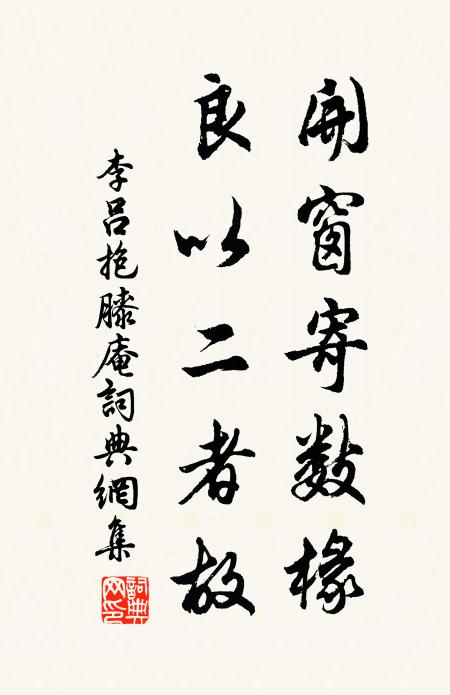 開窗寄數椽
良以二者故
李呂抱膝庵詞典網集
詞典網印